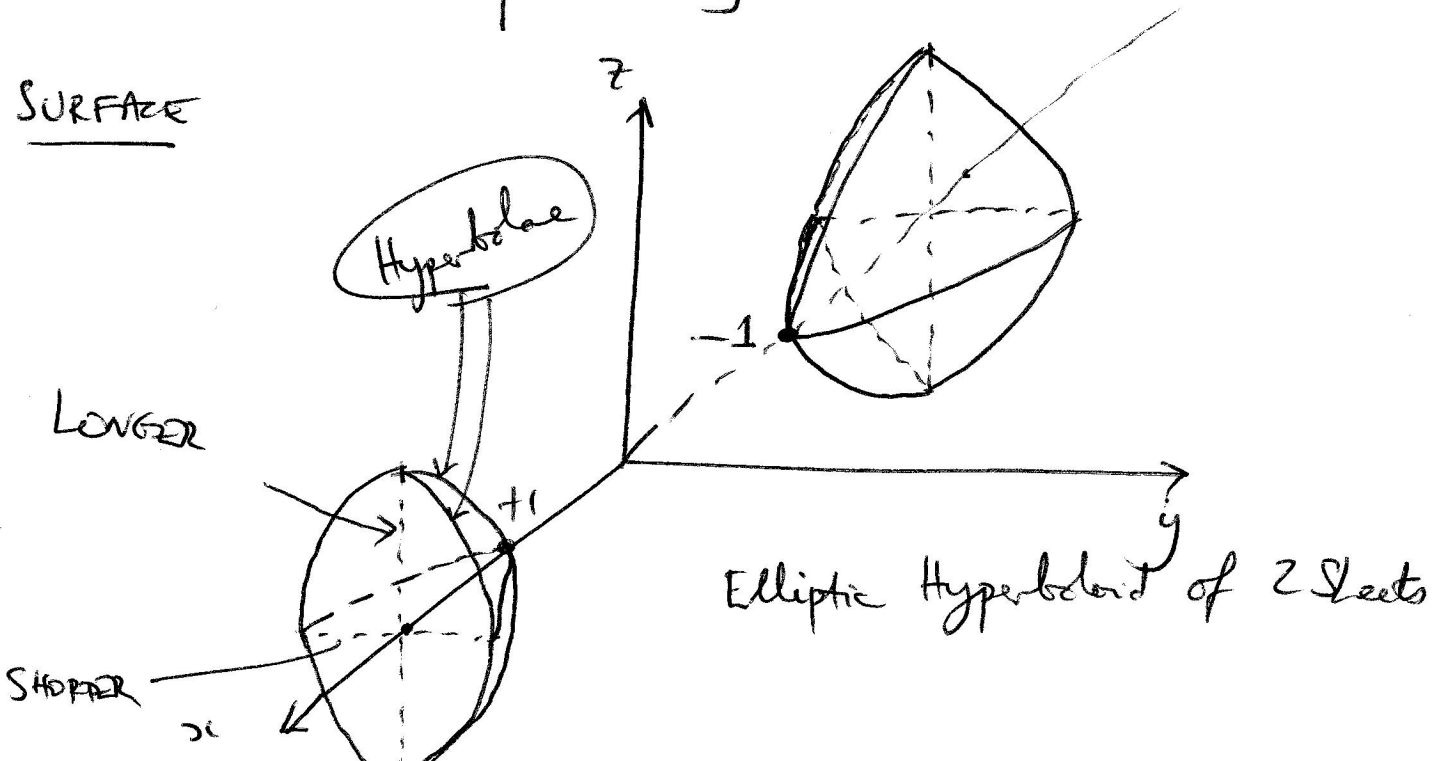 SURFACE
z
Hyperbolae
-1
LONGER
+1
y
Elliptic Hyperboloid of 2 Sheets
SHORTER
x